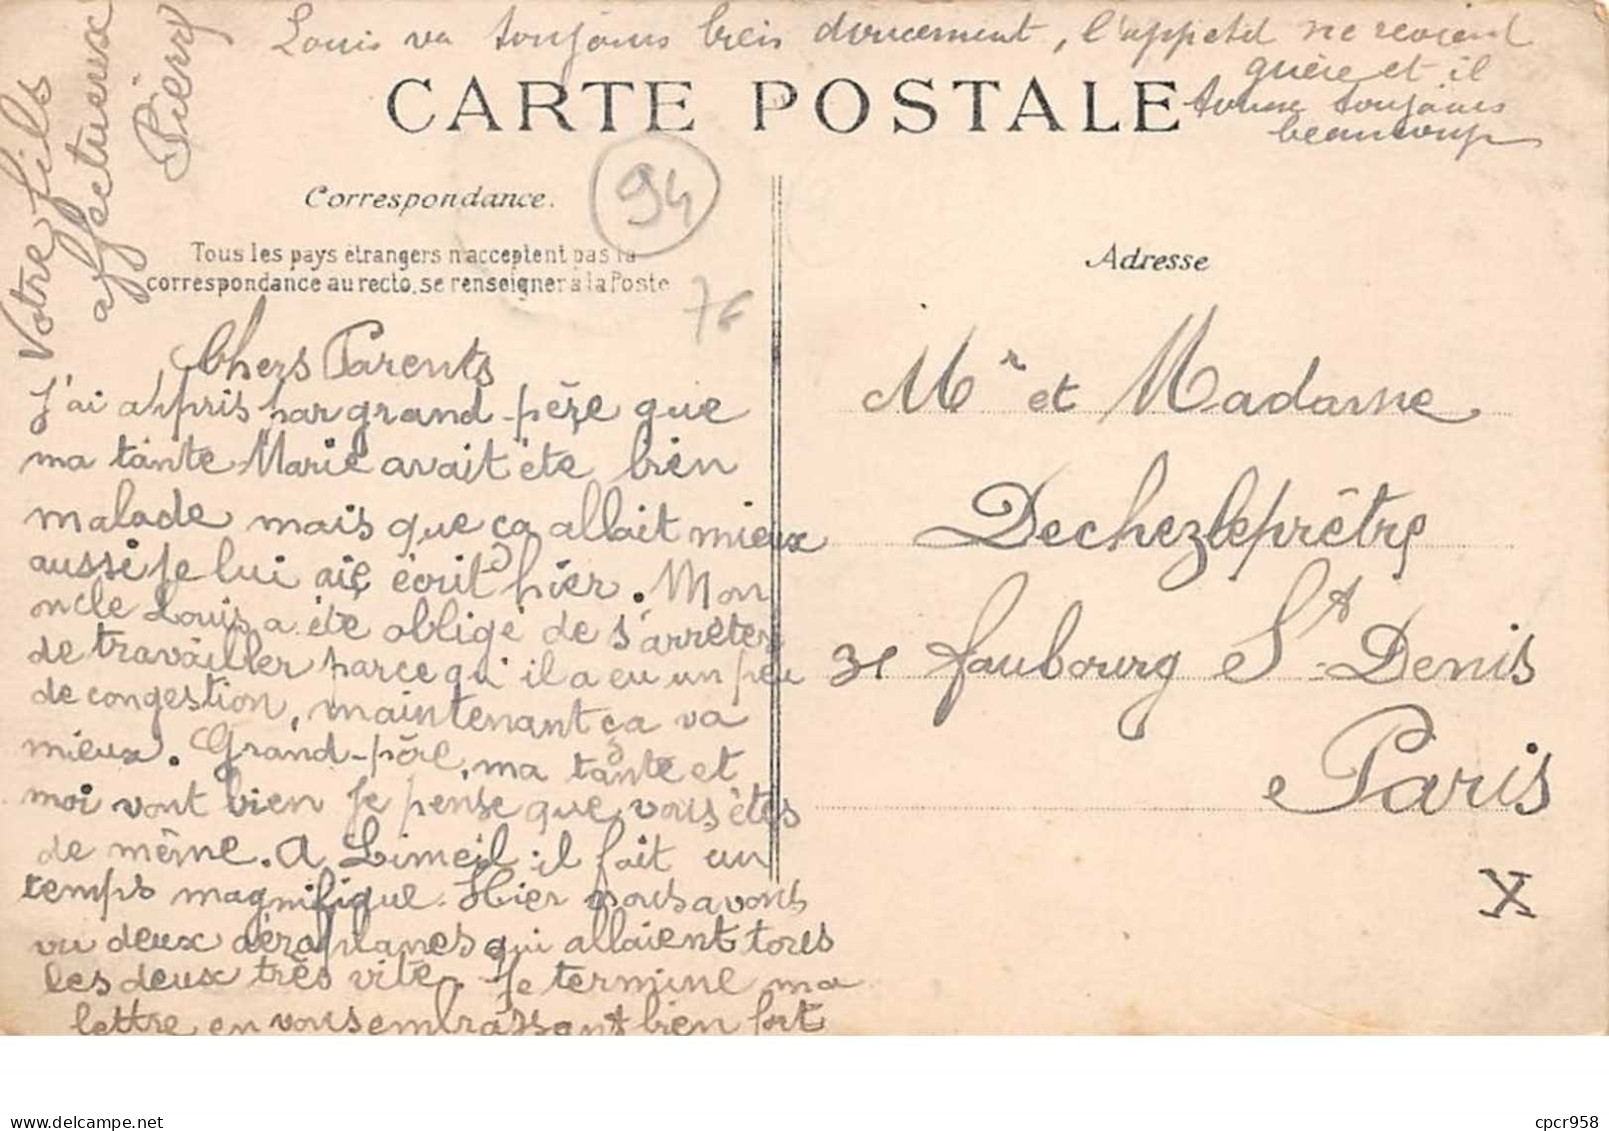 Louis va toujours bien doucement, l'appetit ne revient
guère et il
tousse toujours
beaucoup
CARTE POSTALE
Correspondance.
94
Tous les pays étrangers n'acceptent pas la
correspondance au recto, se renseigner à la Poste
7F
Chers Parents
J'ai appris par grand-père que
ma tante Marie avait été bien
malade mais que ça allait mieux
aussi je lui aie écrit hier. Mon
oncle Louis a été obligé de s'arrêter
de travailler parce qu'il a eu un peu
de congestion, maintenant ça va
mieux. Grand-père, ma tante et
moi vont bien je pense que vous êtes
de même. A Limeil il fait un
temps magnifique. Hier nous avons
vu deux aéroplanes qui allaient tous
les deux très vite. Je termine ma
lettre en vous embrassant bien fort
Votre fils
affectueux
Pierry
Adresse
Mr et Madame
Dechezleprêtre
31 faubourg St-Denis
Paris
X
cpcr958